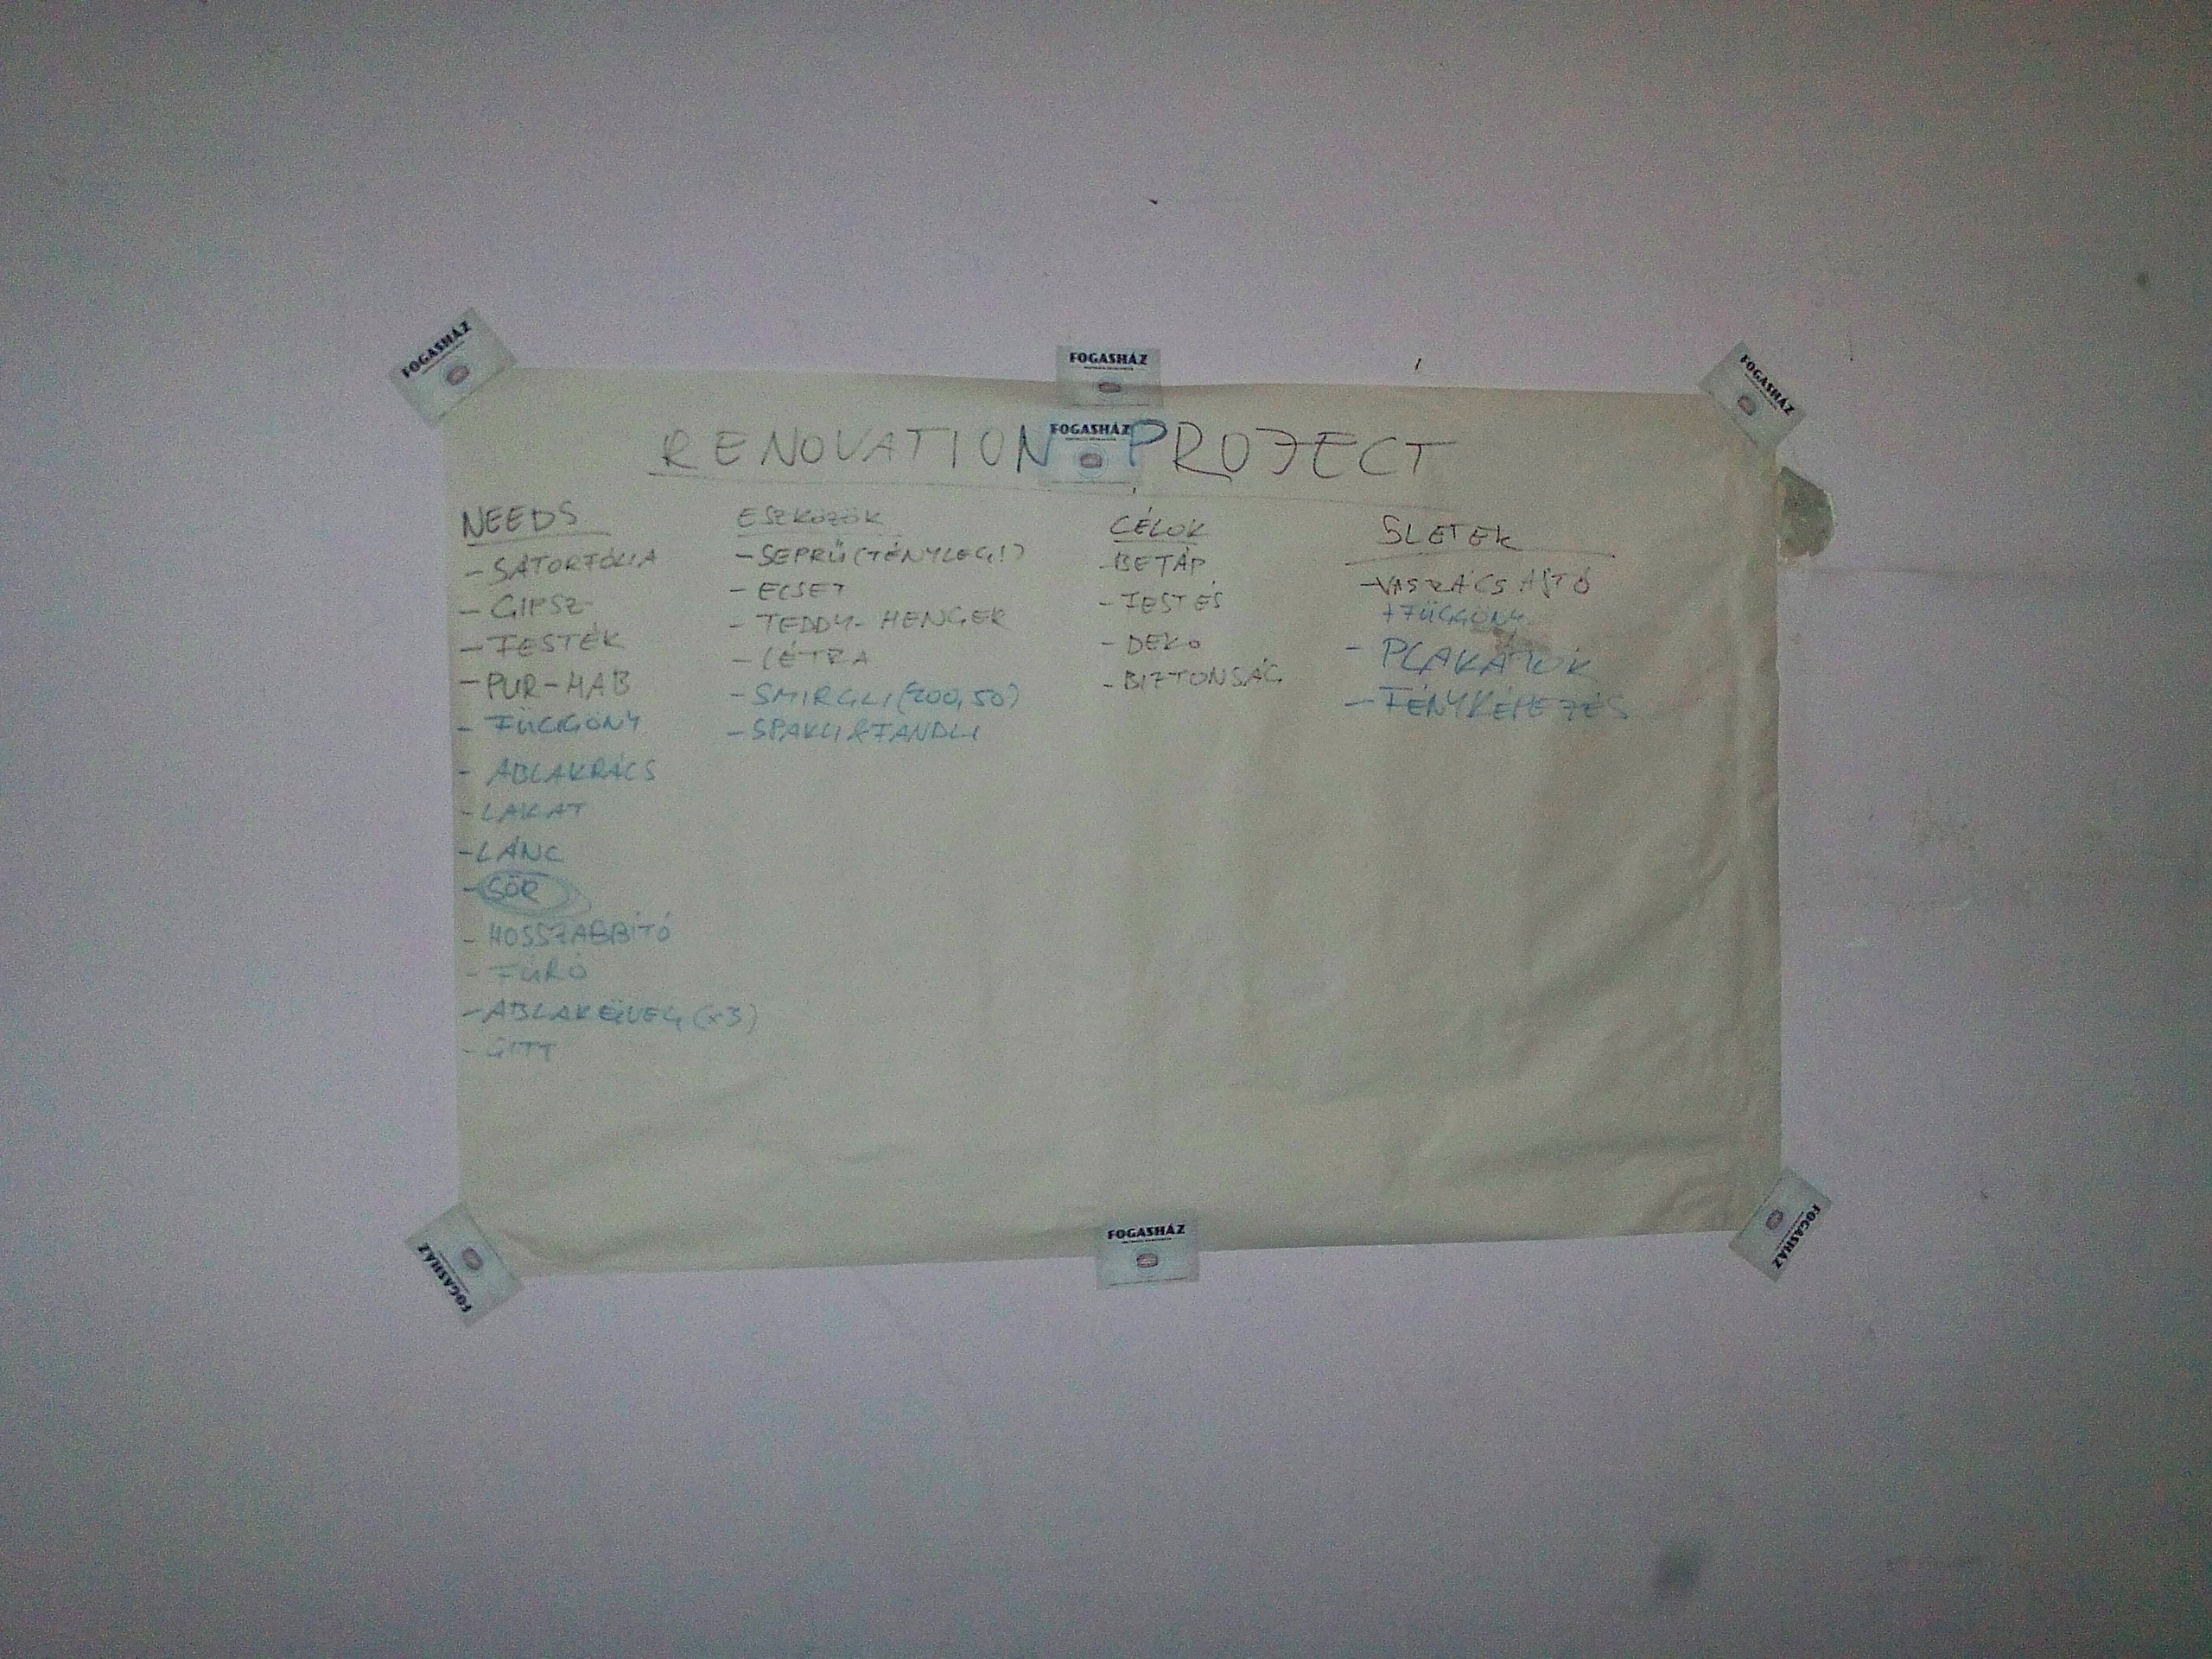 FOGASHÁZ
FOGASHÁZ
FOGASHÁZ
FOGASHÁZ
RENOVATION PROJECT
NEEDS
- SÁTORFÓLIA
- GIPSZ
- FESTÉK
- PUR-HAB
- FÜGGÖNY
- ABLAKRÁCS
- LAKAT
- LÁNC
- SÖR
- HOSSZABBÍTÓ
- FÚRÓ
- ABLAKÜVEG (x3)
- GITT
ESZKÖZÖK
- SEPRŰ (TÉNYLEG!)
- ECSET
- TEDDY-HENGER
- LÉTRA
- SMIRGLI (200, 50)
- SPAKLI & FANDLI
CÉLOK
- BETÁP
- FESTÉS
- DEKO
- BIZTONSÁG
- VASRÁCS AJTÓ
+ FÜGGÖNY
- PLAKÁTOK
- FÉNYKÉPEZÉS
FOGASHÁZ
FOGASHÁZ
FOGASHÁZ